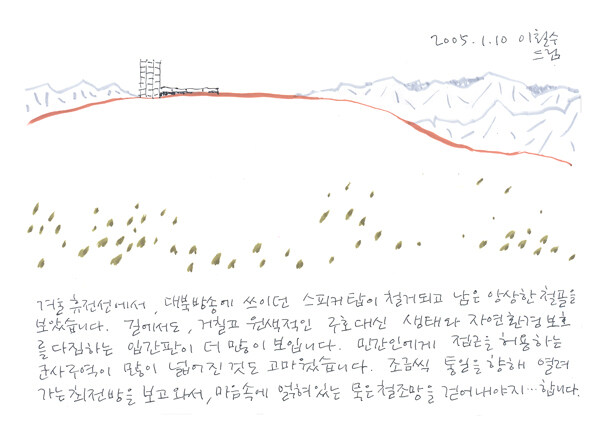 2005.1.10 이철수
드림
겨울 휴전선에서, 대북방송에 쓰이던 스피커탑이 철거되고 남은 앙상한 철골을
보았습니다. 길에서도, 거칠고 원색적인 구호대신 생태와 자연환경 보호
를 다짐하는 입간판이 더 많이 보입니다. 민간인에게 접근을 허용하는
군사구역이 많이 넓어진 것도 고마웠습니다. 조금씩 통일을 향해 열려
가는 최전방을 보고 와서, 마음속에 얽혀있는 묵은 철조망을 걷어내야지…합니다.